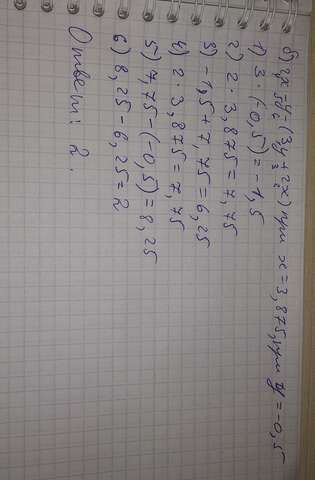 б) 2x-y-(3y+2x) при x=3,875, при y=-0,5
1) 3·(-0,5)=-1,5
2) 2·3,875=7,75
3) -1,5+7,75=6,25
4) 2·3,875=7,75
5) 7,75-(-0,5)=8,25
6) 8,25-6,25=2
Ответ: 2.